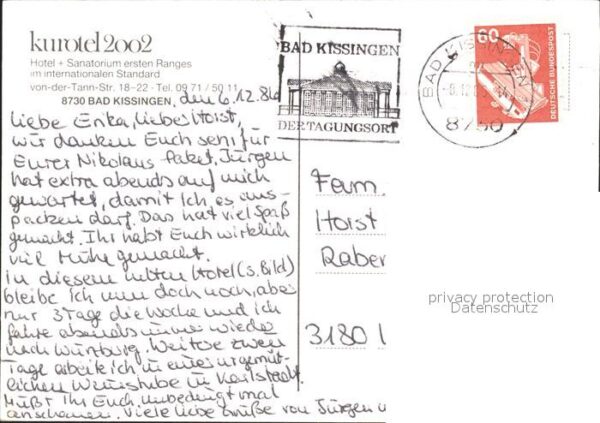 kurotel 2002
Hotel + Sanatorium ersten Ranges
im internationalen Standard
von-der-Tann-Str. 18–22 · Tel. 09 71 / 50 11
8730 BAD KISSINGEN, den 6.12.86
Liebe Erika, liebes Horst,
wir danken Euch sehr für
Eurer Nikolaus Paket, Jürgen
hat extra abends auf mich
gewartet, damit ich es aus-
packen darf. Das hat viel Spaß
gemacht. Ihr habt Euch wirklich
viel Mühe gemacht.
In diesem netten Hotel (s. Bild)
bleibe ich nun doch noch, aber
nur 3 Tage die Woche und ich
fahre abends immer wieder
nach Würzburg. Weitere zwei
Tage arbeite ich in einer urgemüt-
lichen Weinstube in Karlstadt.
Müßt Ihr Euch unbedingt mal
anschauen. Viele liebe Grüße von Jürgen u
BAD KISSINGEN
DER TAGUNGSORT
BAD KISSINGEN
8730
60
DEUTSCHE BUNDESPOST
Fam.
Horst
Raber
3180
privacy protection
Datenschutz